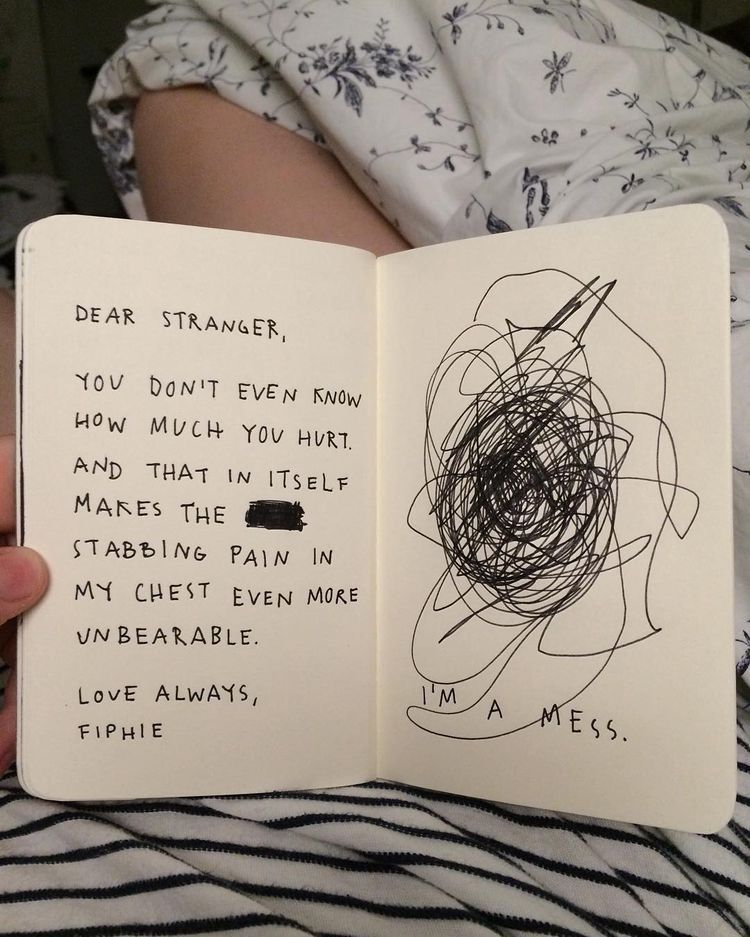 DEAR STRANGER,
YOU DON'T EVEN KNOW
HOW MUCH YOU HURT.
AND THAT IN ITSELF
MAKES THE
STABBING PAIN IN
MY CHEST EVEN MORE
UNBEARABLE.
LOVE ALWAYS,
FIPHIE
I'M A MESS.